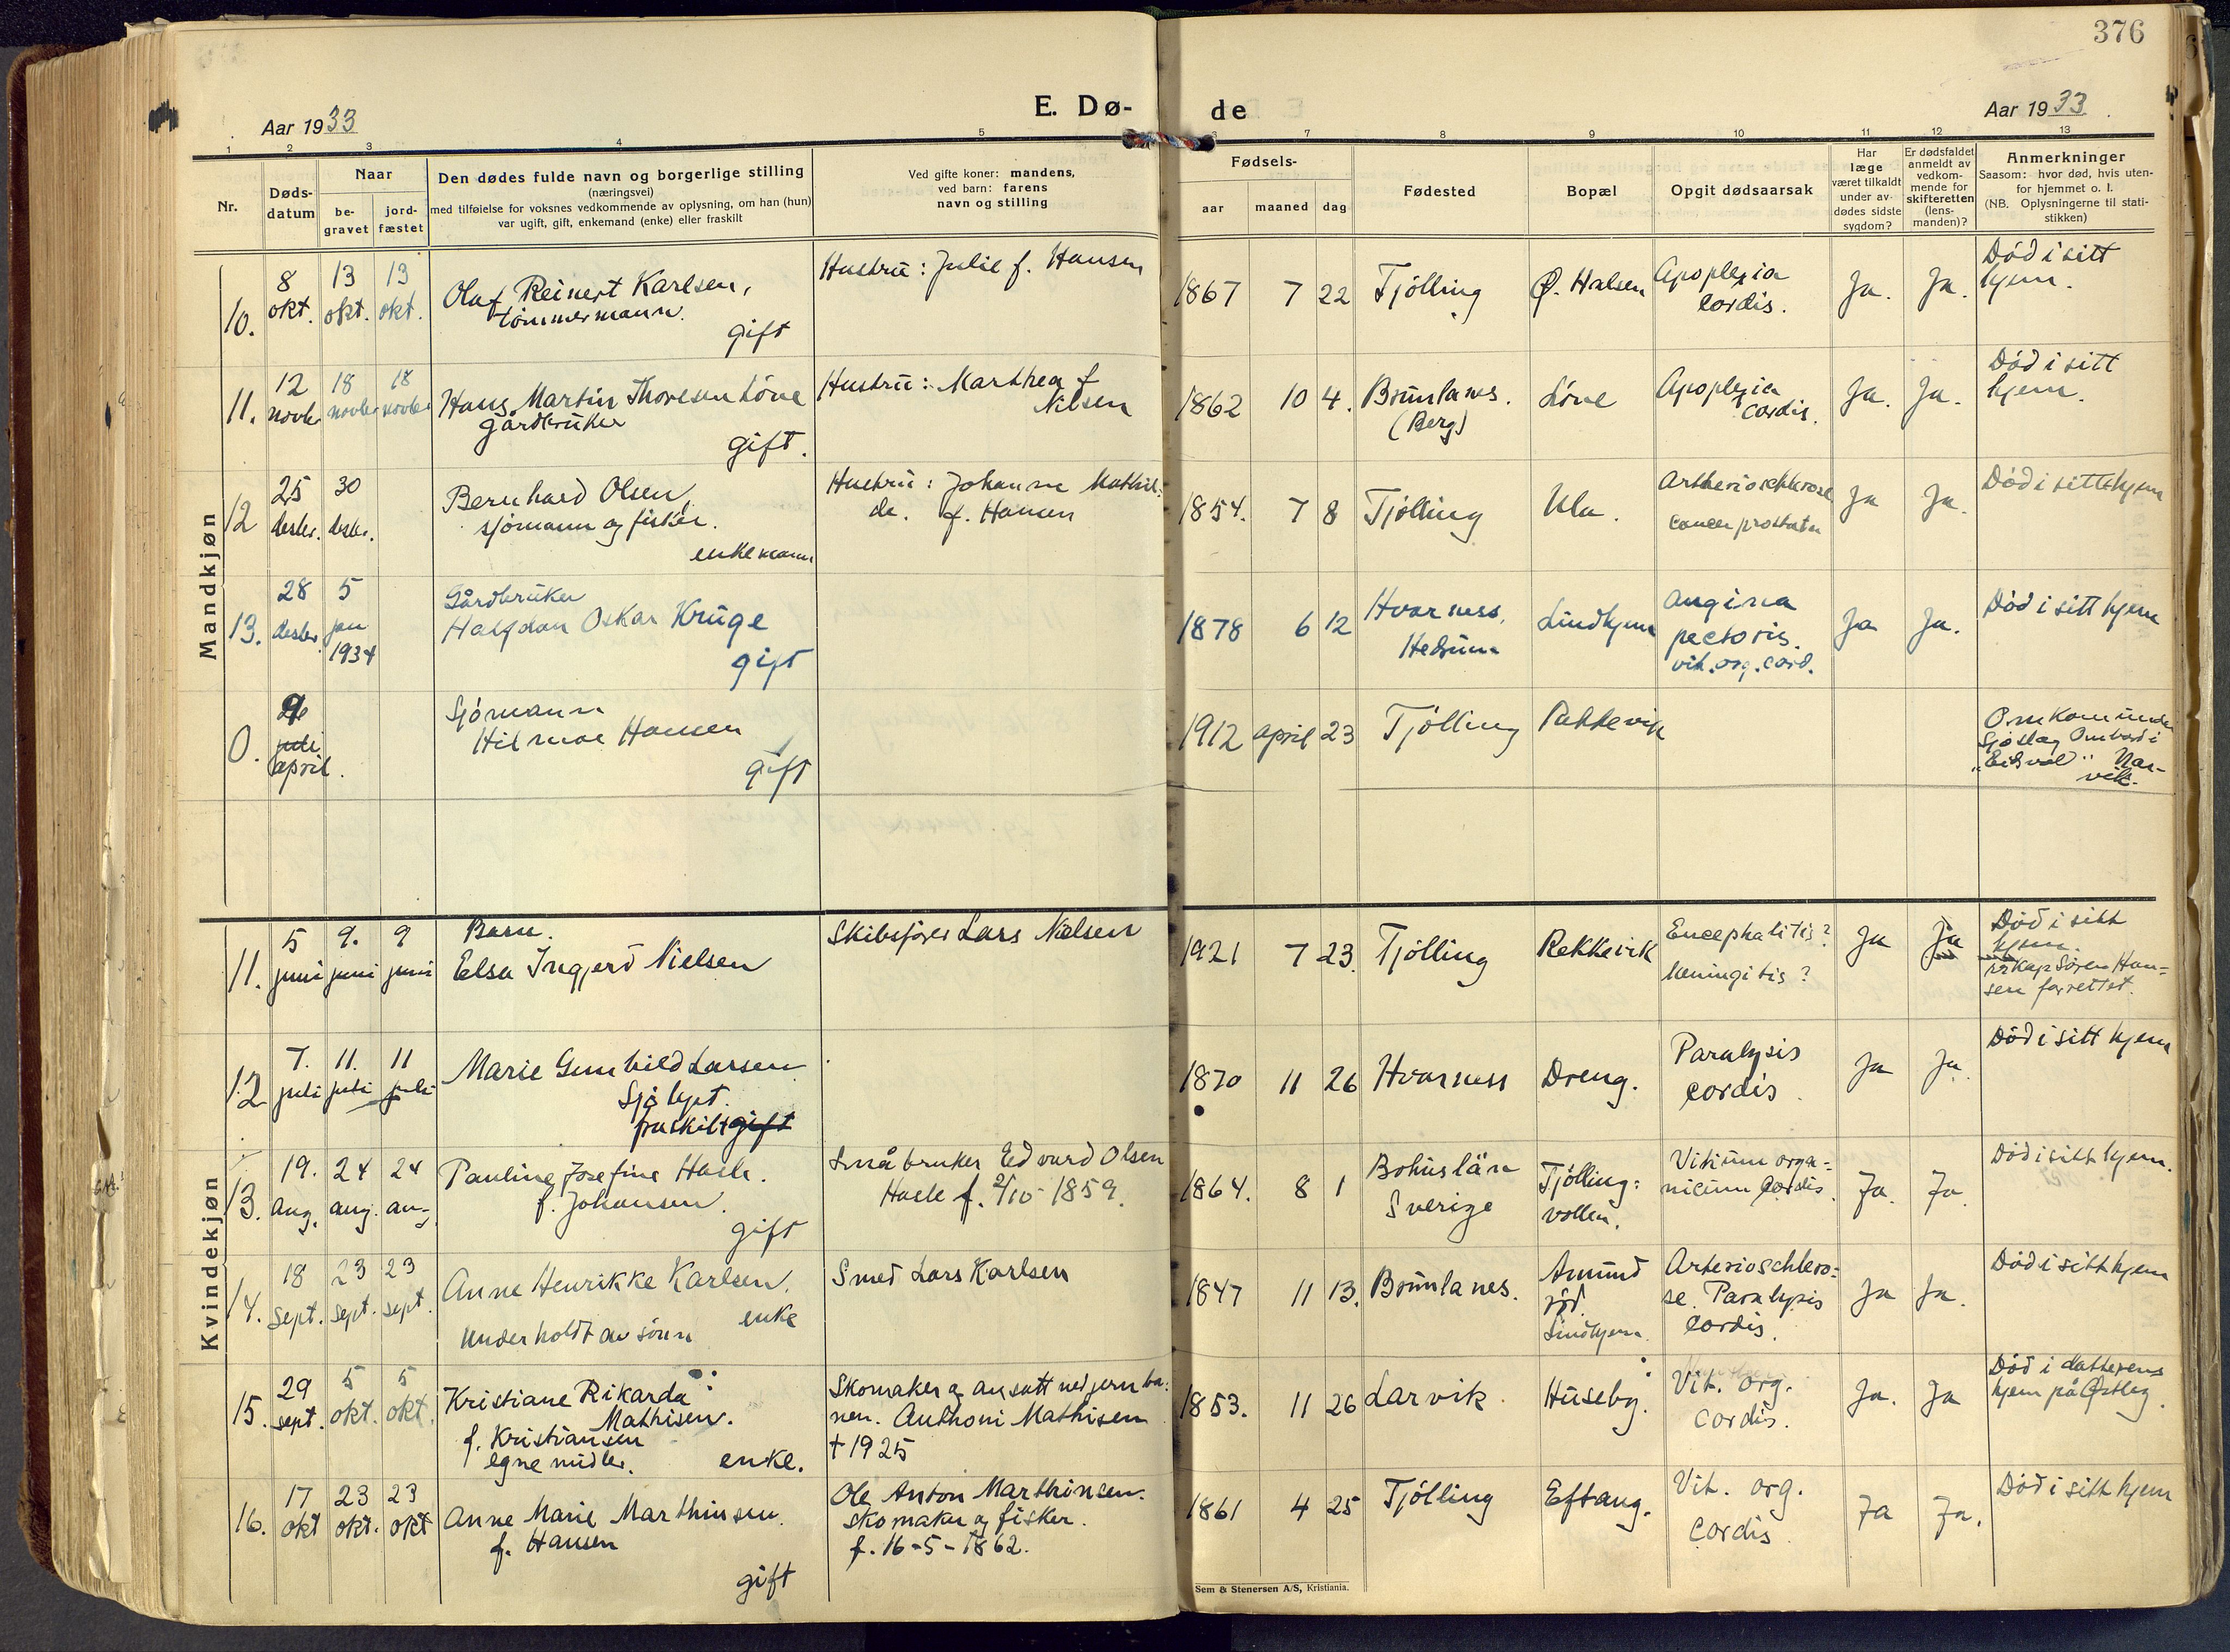 376
Aar 1933
E. Dø-
de
Aar 1933.
1 2 3 4 5 6 7 8 9 10 11 12 13
Nr.
Døds-
datum
Naar
be-
gravet
jord-
fæstet
Den dødes fulde navn og borgerlige stilling
(næringsvei)
med tilføielse for voksnes vedkommende av oplysning, om han (hun)
var ugift, gift, enkemand (enke) eller fraskilt
Ved gifte koner: mandens,
ved barn: farens
navn og stilling
Fødsels-
aar maaned dag
Fødested
Bopæl
Opgit dødsaarsak
Har
læge
været tilkaldt
under av-
dødes sidste
sygdom?
Er dødsfaldet
anmeldt av
vedkom-
mende for
skifteretten
(lens-
manden)?
Anmerkninger
Saasom: hvor død, hvis uten-
for hjemmet o. l.
(NB. Oplysningerne til stati-
stikken)
Mandkjøn
10.
8
okt.
13
okt.
13
okt.
Olaf Reinert Karlsen,
tömmermann.
gift
Hustru: Julie f. Hansen
1867 7 22
Tjölling
Ø. Halsen
Apoplexia
cordis.
Ja.
Ja.
Död i sitt
hjem.
11.
12
novbr
18
novbr
18
novbr
Hans Martin Thoresen Löve
gårdbruker
gift.
Hustru: Marthea f
Nilsen
1862 10 4.
Brunlanes.
(Berg)
Löve
Apoplexia
cordis.
Ja.
Ja.
Död i sitt
hjem.
12
25
desbr.
30
desbr.
Bernhard Olsen,
sjömann og fisker.
enkemann
Hustru: Johanne Mathil-
de. f. Hansen
1854. 7 8
Tjölling
Ula.
Artherioschlerose
cancer prostata
Ja
Ja.
Död i sitt hjem
13.
28
desbr
5
jan
1934
Gårdbruker
Halfdan Oskar Kruge
gift
1878 6 12
Hvarness,
Hedrum
Lindhjem
angina
pectoris.
vit. org. cord.
Ja
Ja.
Död i sitt hjem
0.
9
juli
april.
Sjömann
Hilmar Hansen
gift
1912 april 23
Tjölling
Rekkevik
Omkom under
Sjöslag Ombord i
"Eidsvold" Nar-
vik.
Kvindekjøn
11.
5
juni
9.
juni
9
juni
Barn.
Elsa Ingjerd Nielsen
Skibsförer Lars Nielsen
1921 7 23.
Tjölling
Rekkevik
Encephalitis?
Meningitis?
Ja
Ja
Död i sitt
hjem.
Sören Han-
sen forrettet.
12
7.
juli
11.
juli
11
juli
Marie Gunhild Larsen
fraskilt gift
1870 11 26
Hvarness
Dreng.
Paralysis
cordis.
Ja
Ja.
Död i sitt hjem
13.
19.
aug.
24
aug.
24
aug
Pauline Josefine Hasle.
f. Johansen.
gift
Småbruker Edvard Olsen
Hasle f. 2/10 1859.
1864. 8 1
Bohuslän
Sverige
Tjölling-
vollen.
Vitium orga-
nicum Cordis.
Ja.
Ja.
Död i sitt hjem.
14.
18
sept.
23
sept.
23
sept.
Anne Henrikke Karlsen.
enke
Underholdt av sönn
Smed Lars Karlsen
1847 11 13.
Brunlanes.
Amund
röd.
Lindhjem.
Arterioschlero-
se. Paralysis
Cordis.
Ja
Ja.
Död i sitt hjem
15.
29
sept.
5
okt.
5
okt.
Kristiane Rikarda
Mathisen.
f. Kristiansen
egne midler.
enke.
Skomaker og ansatt ved jernba-
nen. Anthoni Mathisen
† 1925
1853. 11 26
Larvik.
Huseby.
Vit. org.
cordis.
Ja.
Ja
Död i datterens
hjem på Östby
16.
17
okt
23
okt.
23
okt
Anne Marie Marthinsen.
f. Hansen
gift
Ole Anton Marthinsen.
skomaker og fisker.
f. 16-5-1862.
1861 4 25
Tjölling
Eftang.
Vit. org.
cordis.
Ja
Ja.
Död i sitt hjem
Sem & Stenersen A/S, Kristiania.